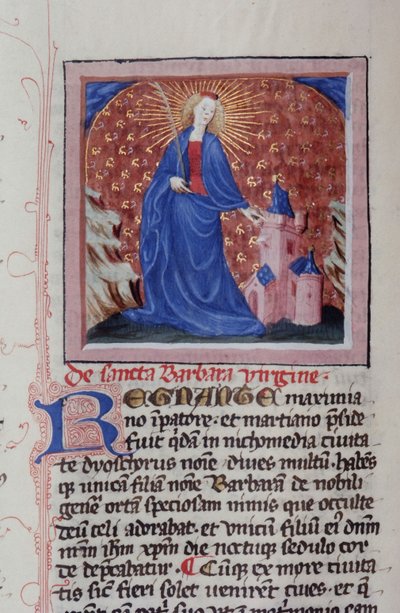 De sancta Barbara virgine.
REGNANTE maximia
no īpatore · et martiano p̄side
fuit qdā in nichomedia ciuita
te dyoscorus noīe diues multū · habēs
q̨ unicā filiā noīe Barbarā de nobili
genere ortā speciosam nimis que occulte
deū celi adorabat · et vnicū filiū eī dn̄m
nr̄m ihm̄ xp̄m die noctuq̨ sedulo cor
de dep̄cabatur . Cūq̨ ex more ciuita
tis sic̄ fieri solet venirēt ciues · et q̨